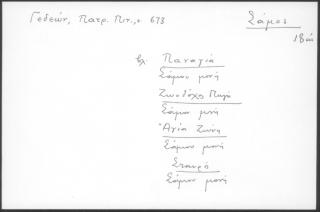 Γεδεών, Πατρ. Πιν., σ. 673
Σάμος
18αι
βλ. Παναγιά
Σάμου μονή
Ζωοδόχος Πηγή
Σάμου μονή
Ἁγία Ζώνη
Σάμου μονή
Σταυρός
Σάμου μονή